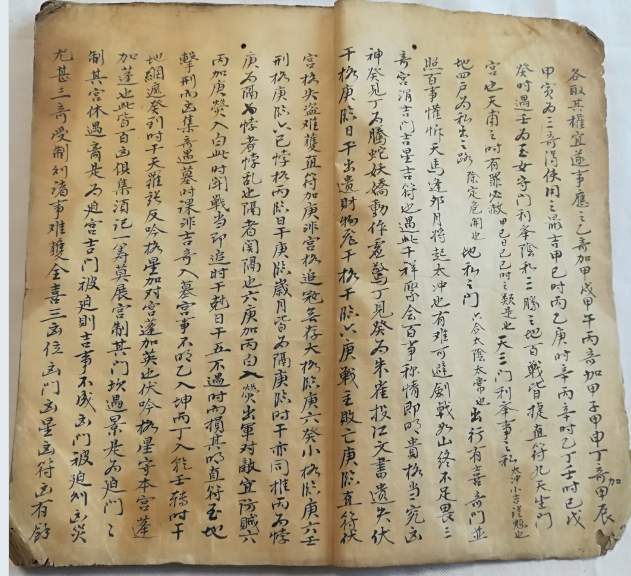 各取其權宜遂事應之乙奇加甲戌甲午丙奇加甲子甲申丁奇加甲辰
甲寅為三奇得使用之最吉甲己時丙乙庚時辛丙辛時乙丁壬時己戊
癸時遇壬為玉女守門利举陰私三勝之地百戰皆提直符九天生門
宮也天甫之時有罪必赦甲己日己巳時之類是也天三門利举事之私太冲小吉從魁也
地四戶為私出之路除定危開也地私之門六合太陰太常也出行有喜奇門並
照百事懽忻天馬達卯月將起太冲也有难可避劍戟如山終不足畏三
奇宮渭吉門吉星吉符也遇此千祥聚会百事称情即明貴格当究凶
神癸見丁為騰蛇妖嬌動作虛驚丁見癸為朱雀投江文書遗失伏
干格庚临日干出遗財物飛干格干临六庚戰主敗亡庚临直符伏
宮格失盗难獲直符加庚飛宮格追寇無存大格临庚六癸小格临庚六壬
刑格庚临六己悖格丙临日干庚临歳月皆為隔庚临时干亦同推丙為悖
庚為隔為悖者悖乱也隔者阁隔也六庚加丙白入熒出軍对敵宜防贼六
丙加庚熒入白此時闻戰当即追時干尅日干五不遇時而損其明直符玉地
擊刑而凶集奇遇墓時课非吉奇入墓宮事不明乙入坤丙丁入乾壬轉时十
地網遮癸到时干天羅張反吟格星加对宮蓬加英也伏吟格星守本宮蓬
加蓬也此皆百凶俱集湏記一籌莫展宮制其門坎遇景是為迫門之
制其宮休遇离是為迫宮吉門被迫則吉事不成凶門被迫刘凶災
尤甚三奇受制刘诸事难獲全喜三凶位凶門凶星凶符凶有舒